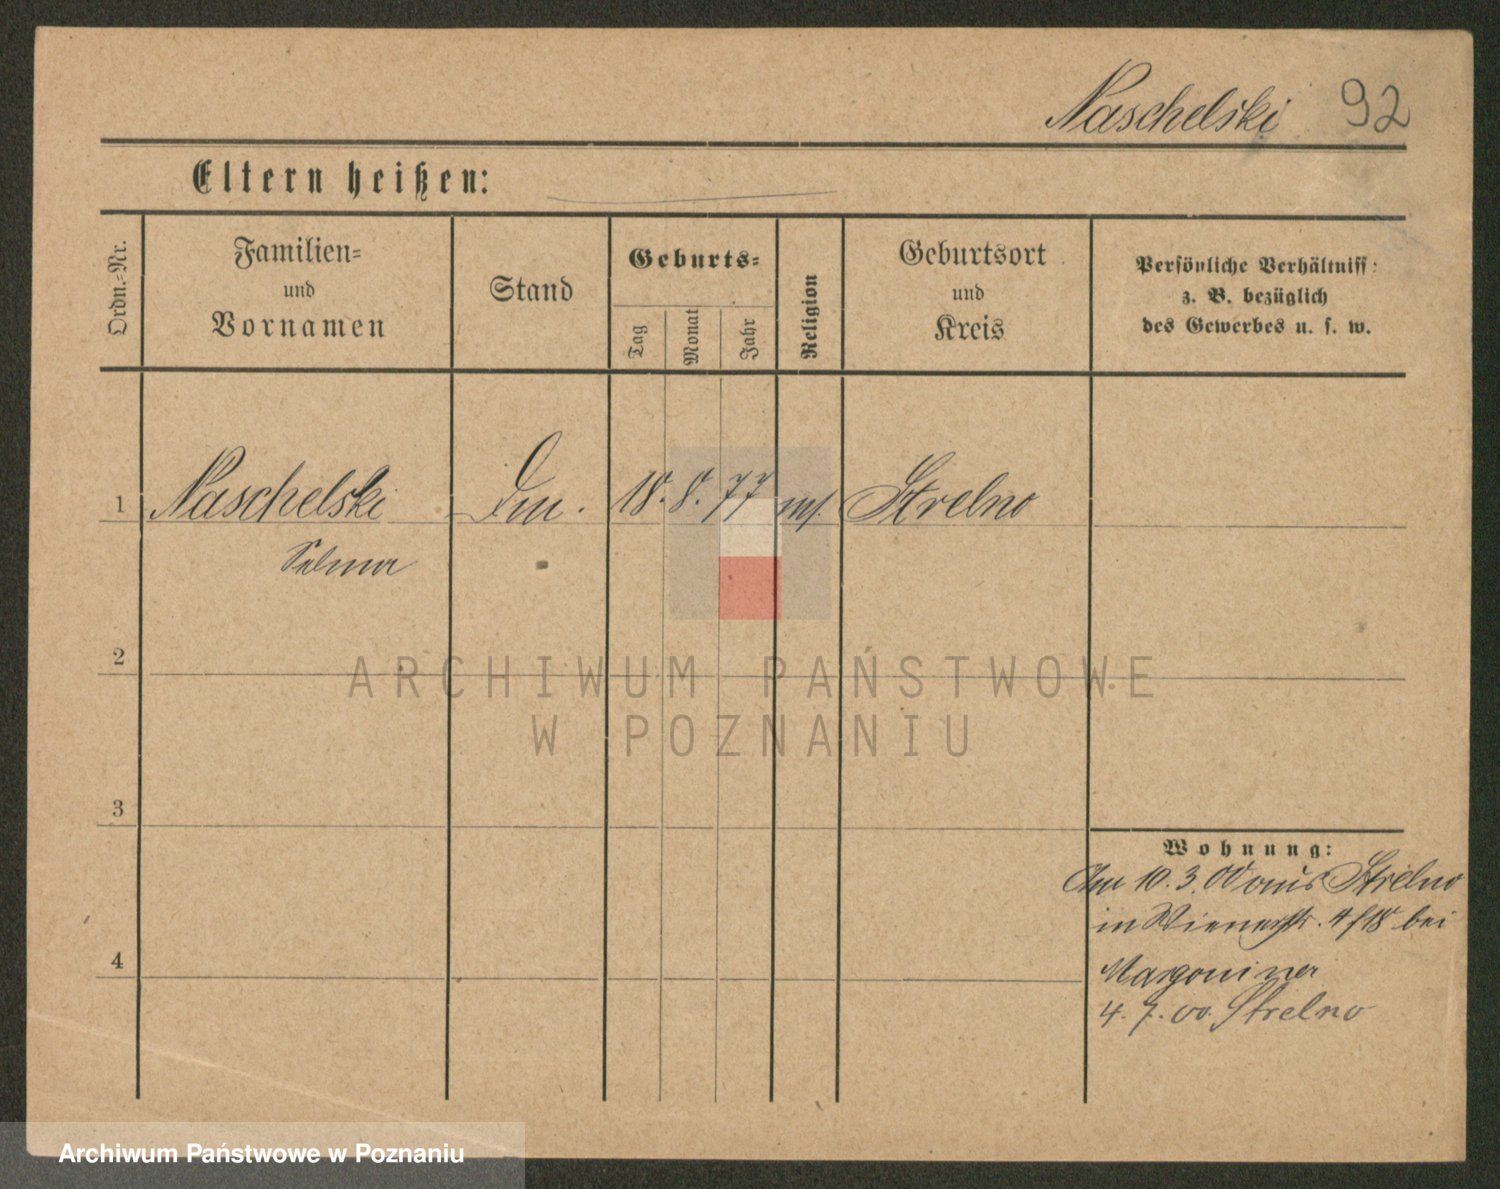 Naschelski 92
Eltern heißen:
Ordn.-Nr.
Familien=
und
Vornamen
Stand
Geburts=
Tag
Monat
Jahr
Religion
Geburtsort
und
Kreis
Persönliche Verhältniss
z. B. bezüglich
des Gewerbes u. s. w.
1 Naschelski 18. 8. 77 Strelno
Selma
2
3
4
ARCHIWUM PAŃSTWOWE
W POZNANIU
Wohnung:
10. 3. 00 aus Strelno
in Wienerstr. 4/18 bei
Margoniner
4. 7. 00. Strelno
Archiwum Państwowe w Poznaniu